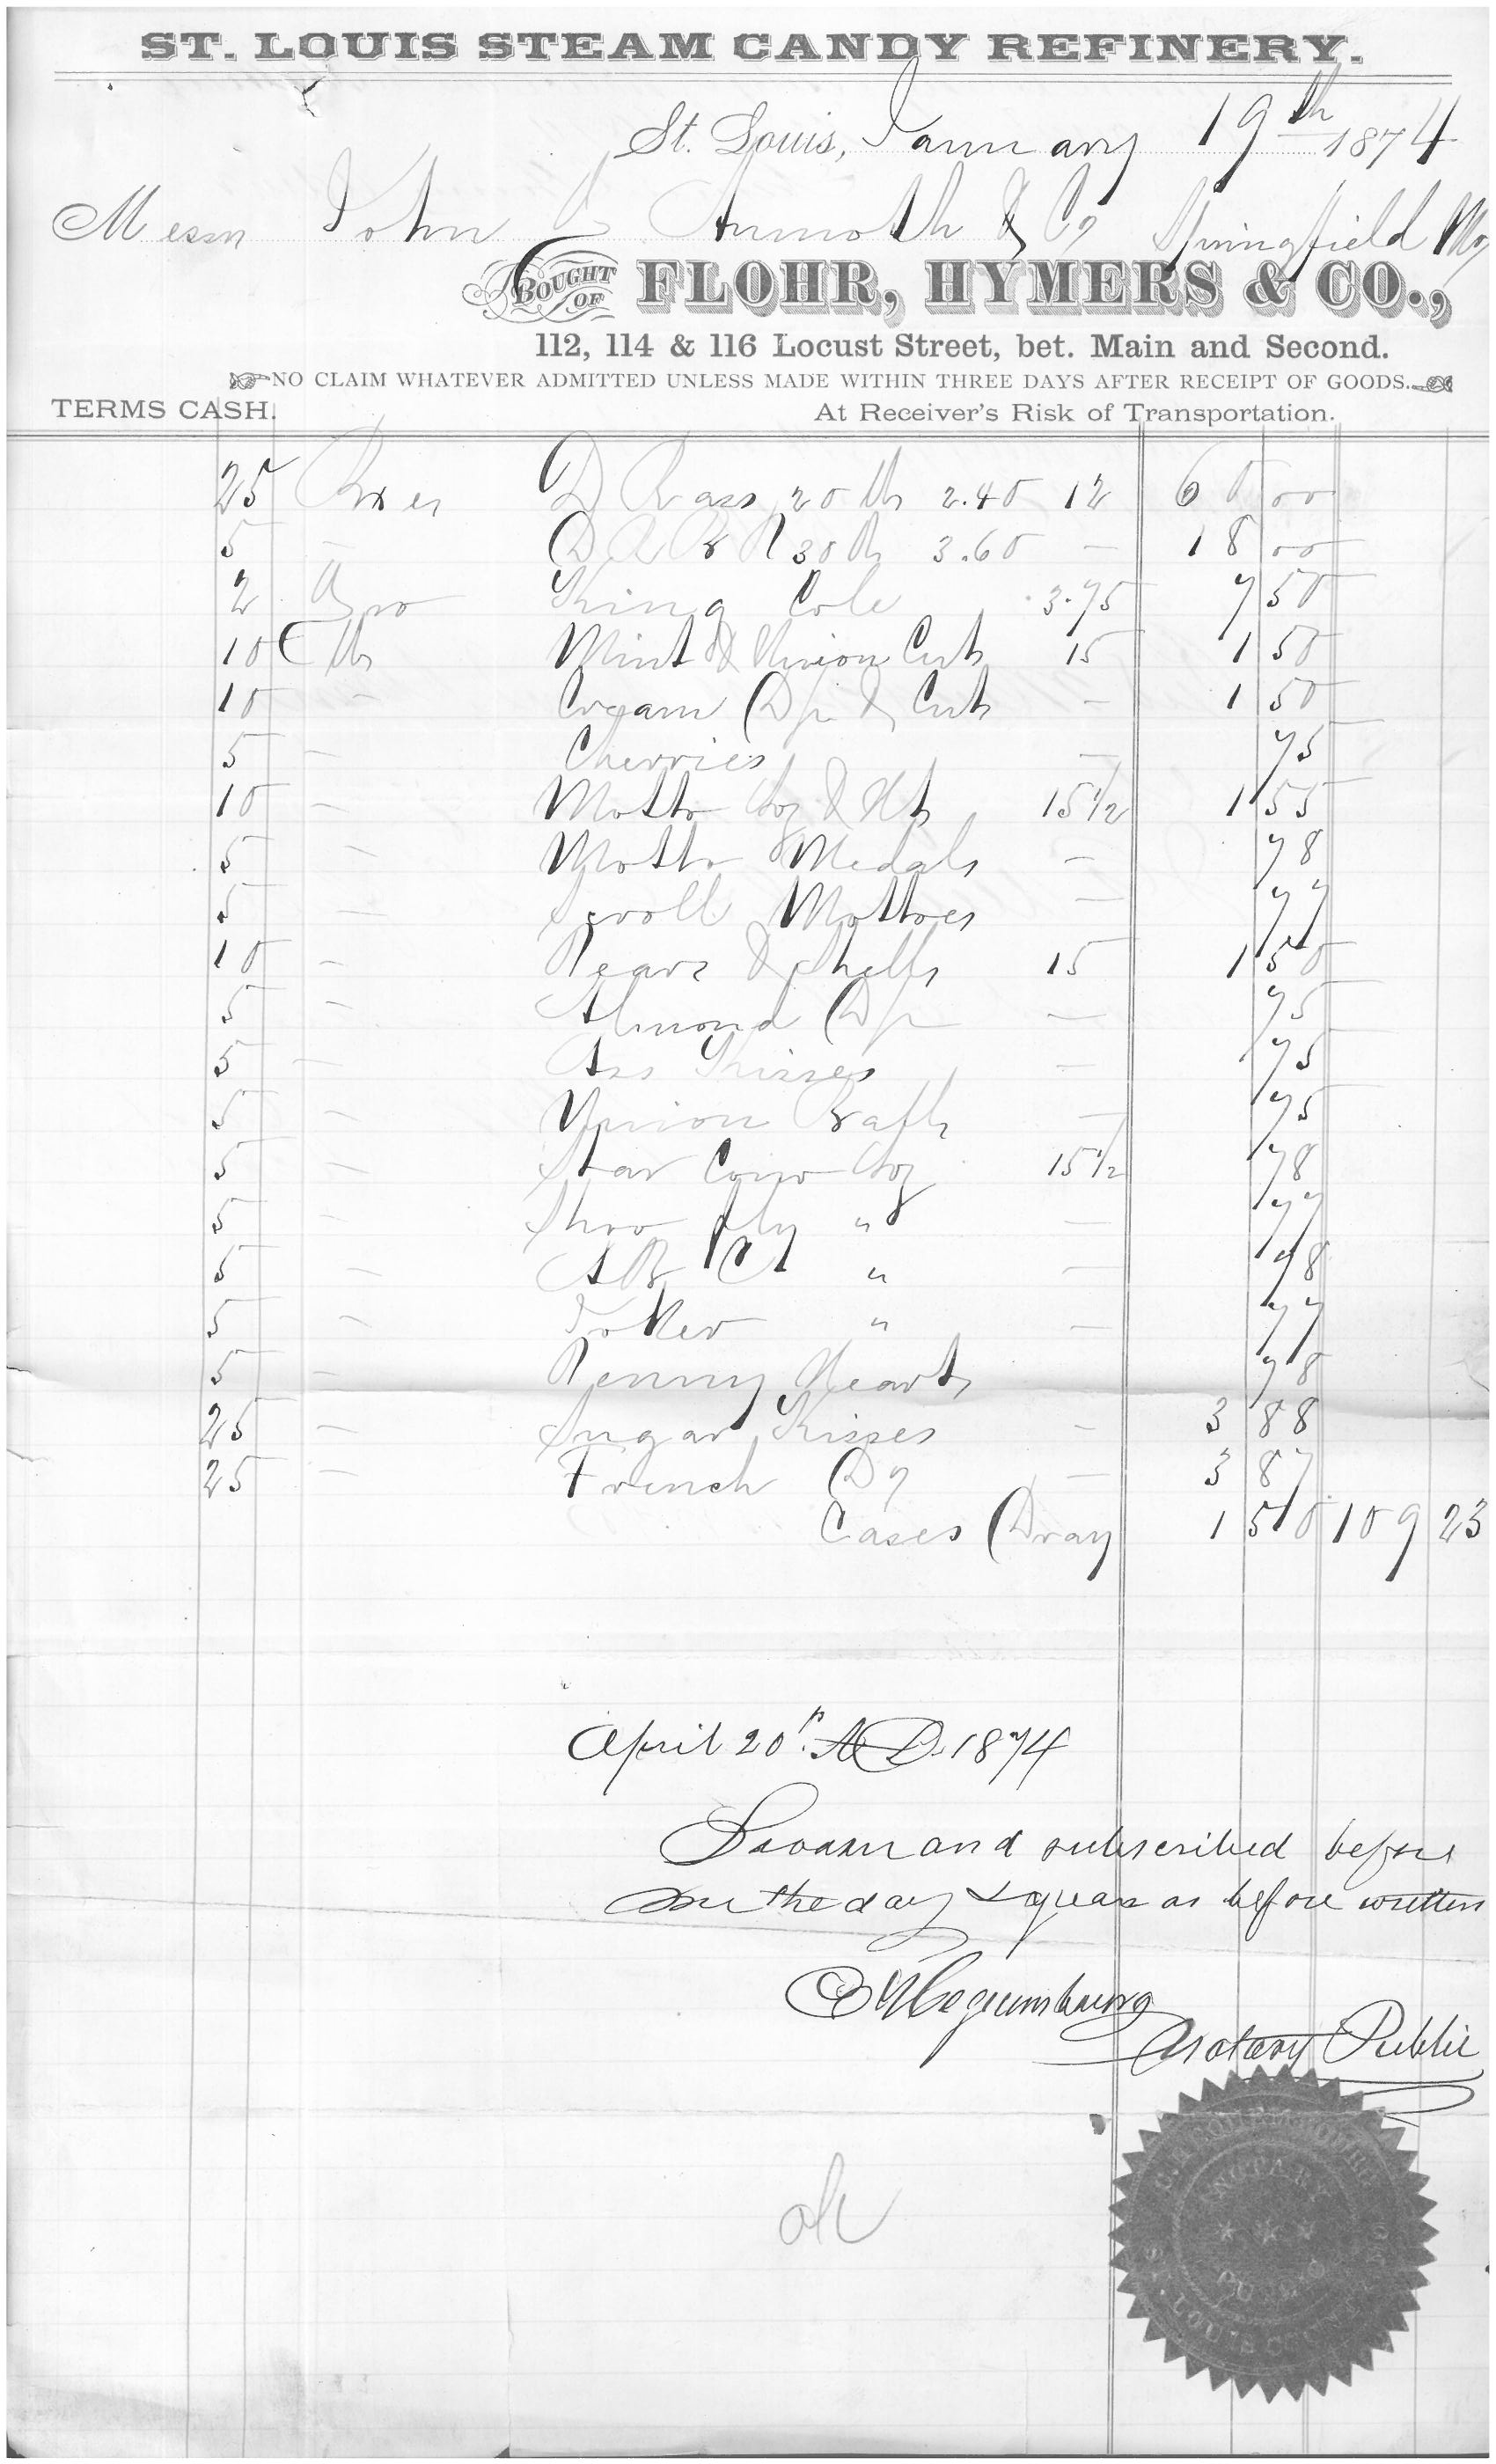 ST. LOUIS STEAM CANDY REFINERY.
St. Louis, January 19th 1874
Messrs John & Co Springfield Mo,
BOUGHT OF FLOHR, HYMERS & CO.,
112, 114 & 116 Locust Street, bet. Main and Second.
NO CLAIM WHATEVER ADMITTED UNLESS MADE WITHIN THREE DAYS AFTER RECEIPT OF GOODS.
TERMS CASH. At Receiver's Risk of Transportation.
25 Bxes 20 lb 2.40 12 60 00
5 — 30 lb 3.60 — 18 00
2 Gro King Cole 3.75 7 50
10 lbs Mint & Union Cuts 15 1 50
10 — Cream Dp & Cuts — 1 50
5 — Cherries — 75
10 — Motto Loz & Hts 15 1/2 1 55
5 — Motto Medals — 78
5 — Scroll Mottoes — 77
10 — Pears & Shells 15 1 50
5 — Almond Dp — 75
5 — Ass Kisses — 75
5 — Union Balls — 75
5 — Star Conv Loz 15 1/2 78
5 — Shoo Fly " — 77
5 — A B C " — 78
5 — Joker " — 77
5 — Penny Hearts 78
25 — Sugar Kisses — 3 88
25 — French — 3 87
Cases Dray 1 50 109 23
April 20th A.D. 1874
Sworn and subscribed before
me the day & year as before written
Notary Public
ok
NOTARY
PUBLIC
ST. LOUIS COUNTY MO